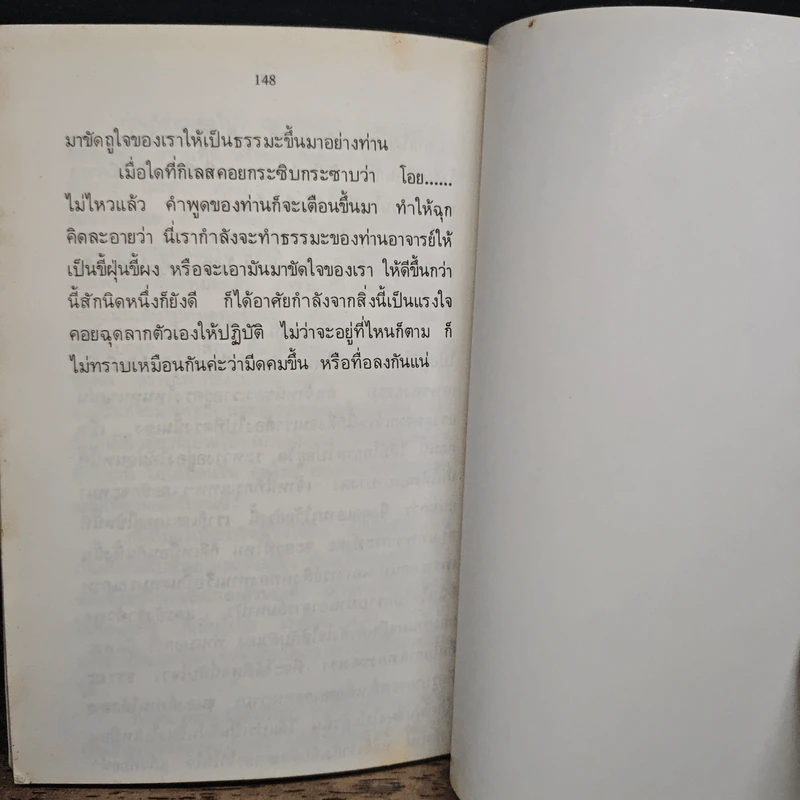 148
มาขัดถูใจของเราให้เป็นธรรมะขึ้นมาอย่างท่าน
เมื่อใดที่กิเลสคอยกระซิบกระซาบว่า โอย......
ไม่ไหวแล้ว คำพูดของท่านก็จะเตือนขึ้นมา ทำให้ฉุก
คิดละอายว่า นี่เรากำลังจะทำธรรมะของท่านอาจารย์ให้
เป็นขี้ฝุ่นขี้ผง หรือจะเอามันมาขัดใจของเรา ให้ดีขึ้นกว่า
นี้สักนิดหนึ่งก็ยังดี ก็ได้อาศัยกำลังจากสิ่งนี้เป็นแรงใจ
คอยฉุดลากตัวเองให้ปฏิบัติ ไม่ว่าจะอยู่ที่ไหนก็ตาม ก็
ไม่ทราบเหมือนกันค่ะว่ามีดคมขึ้น หรือทื่อลงกันแน่